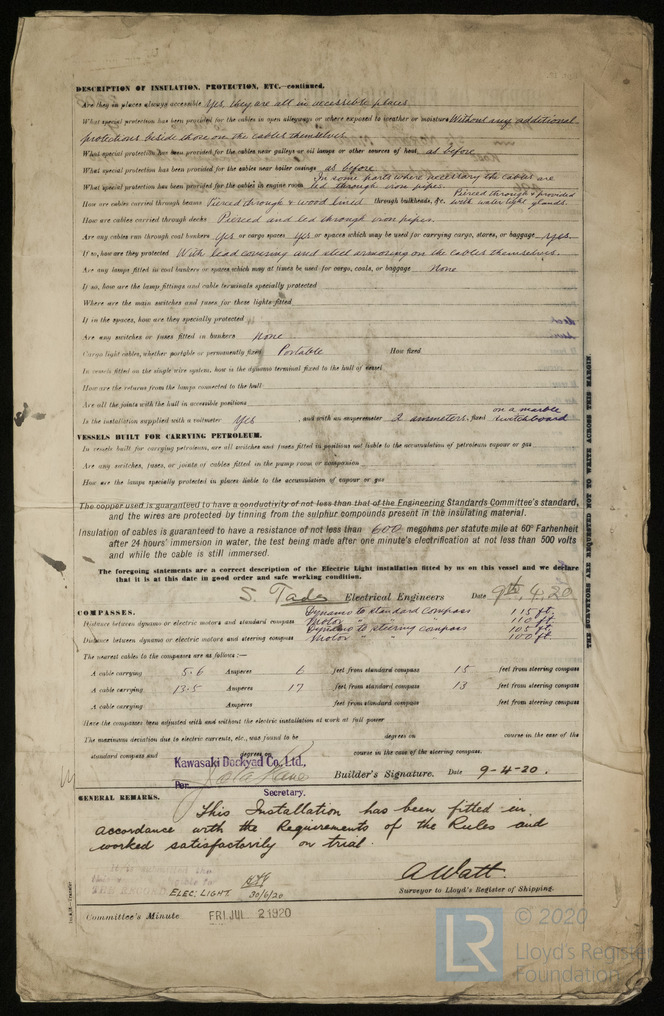 DESCRIPTION OF INSULATION, PROTECTION, ETC.—continued.
Are they in places always accessible Yes, they are all in accessible places.
What special protection has been provided for the cables in open alleyways or where exposed to weather or moisture Without any additional
protections beside those on the cables themselves
What special protection has been provided for the cables near galleys or oil lamps or other sources of heat as before
What special protection has been provided for the cables near boiler casings as before
In some parts where necessary the cables are
What special protection has been provided for the cables in engine room led through iron pipes.
How are cables carried through beams Pierced through & wood lined through bulkheads, &c. Pierced through & provided with water tight glands.
How are cables carried through decks Pierced and led through iron pipes.
Are any cables run through coal bunkers Yes or cargo spaces Yes or spaces which may be used for carrying cargo, stores, or baggage Yes.
If so, how are they protected With lead covering and steel armoring on the cables themselves.
Are any lamps fitted in coal bunkers or spaces which may at times be used for cargo, coals, or baggage None
If so, how are the lamp fittings and cable terminals specially protected
Where are the main switches and fuses for these lights fitted
If in the spaces, how are they specially protected
Are any switches or fuses fitted in bunkers None
Cargo light cables, whether portable or permanently fixed Portable How fixed
In vessels fitted on the single wire system, how is the dynamo terminal fixed to the hull of vessel
How are the returns from the lamps connected to the hull
Are all the joints with the hull in accessible positions
Is the installation supplied with a voltmeter Yes , and with an amperemeter 2 ammeters, fixed on a marble switchboard
VESSELS BUILT FOR CARRYING PETROLEUM.
In vessels built for carrying petroleum, are all switches and fuses fitted in positions not liable to the accumulation of petroleum vapour or gas
Are any switches, fuses, or joints of cables fitted in the pump room or companion
How are the lamps specially protected in places liable to the accumulation of vapour or gas
The copper used is guaranteed to have a conductivity of not less than that of the Engineering Standards Committee's standard,
and the wires are protected by tinning from the sulphur compounds present in the insulating material.
Insulation of cables is guaranteed to have a resistance of not less than 600 megohms per statute mile at 60° Farhenheit
after 24 hours' immersion in water, the test being made after one minute's electrification at not less than 500 volts
and while the cable is still immersed.
The foregoing statements are a correct description of the Electric Light installation fitted by us on this vessel and we declare
that it is at this date in good order and safe working condition.
S. Tada Electrical Engineers Date 9th, 4, 20
COMPASSES.
Dynamo to standard compass 115 ft.
Distance between dynamo or electric motors and standard compass Motor " " " 110 ft.
Dynamo to steering compass 105 ft.
Distance between dynamo or electric motors and steering compass Motor " " 100 ft.
The nearest cables to the compasses are as follows:—
A cable carrying 5.6 Amperes 6 feet from standard compass 15 feet from steering compass
A cable carrying 13.5 Amperes 17 feet from standard compass 13 feet from steering compass
A cable carrying Amperes feet from standard compass feet from steering compass
Have the compasses been adjusted with and without the electric installation at work at full power
The maximum deviation due to electric currents, etc., was found to be degrees on course in the case of the
standard compass and degrees on course in the case of the steering compass.
Kawasaki Dockyad Co. Ltd.,
Per Builder's Signature. Date 9-4-20.
Secretary.
GENERAL REMARKS.
This Installation has been fitted in
accordance with the Requirements of the Rules and
worked satisfactorily on trial.
A Watt.
Surveyor to Lloyd's Register of Shipping.
ELEC: LIGHT. 30/6/20
Committee's Minute FRI. JUL 2 1920
THE SURVEYORS ARE REQUESTED NOT TO WRITE ACROSS THIS MARGIN.
LR
© 2020
Lloyd's Register
Foundation